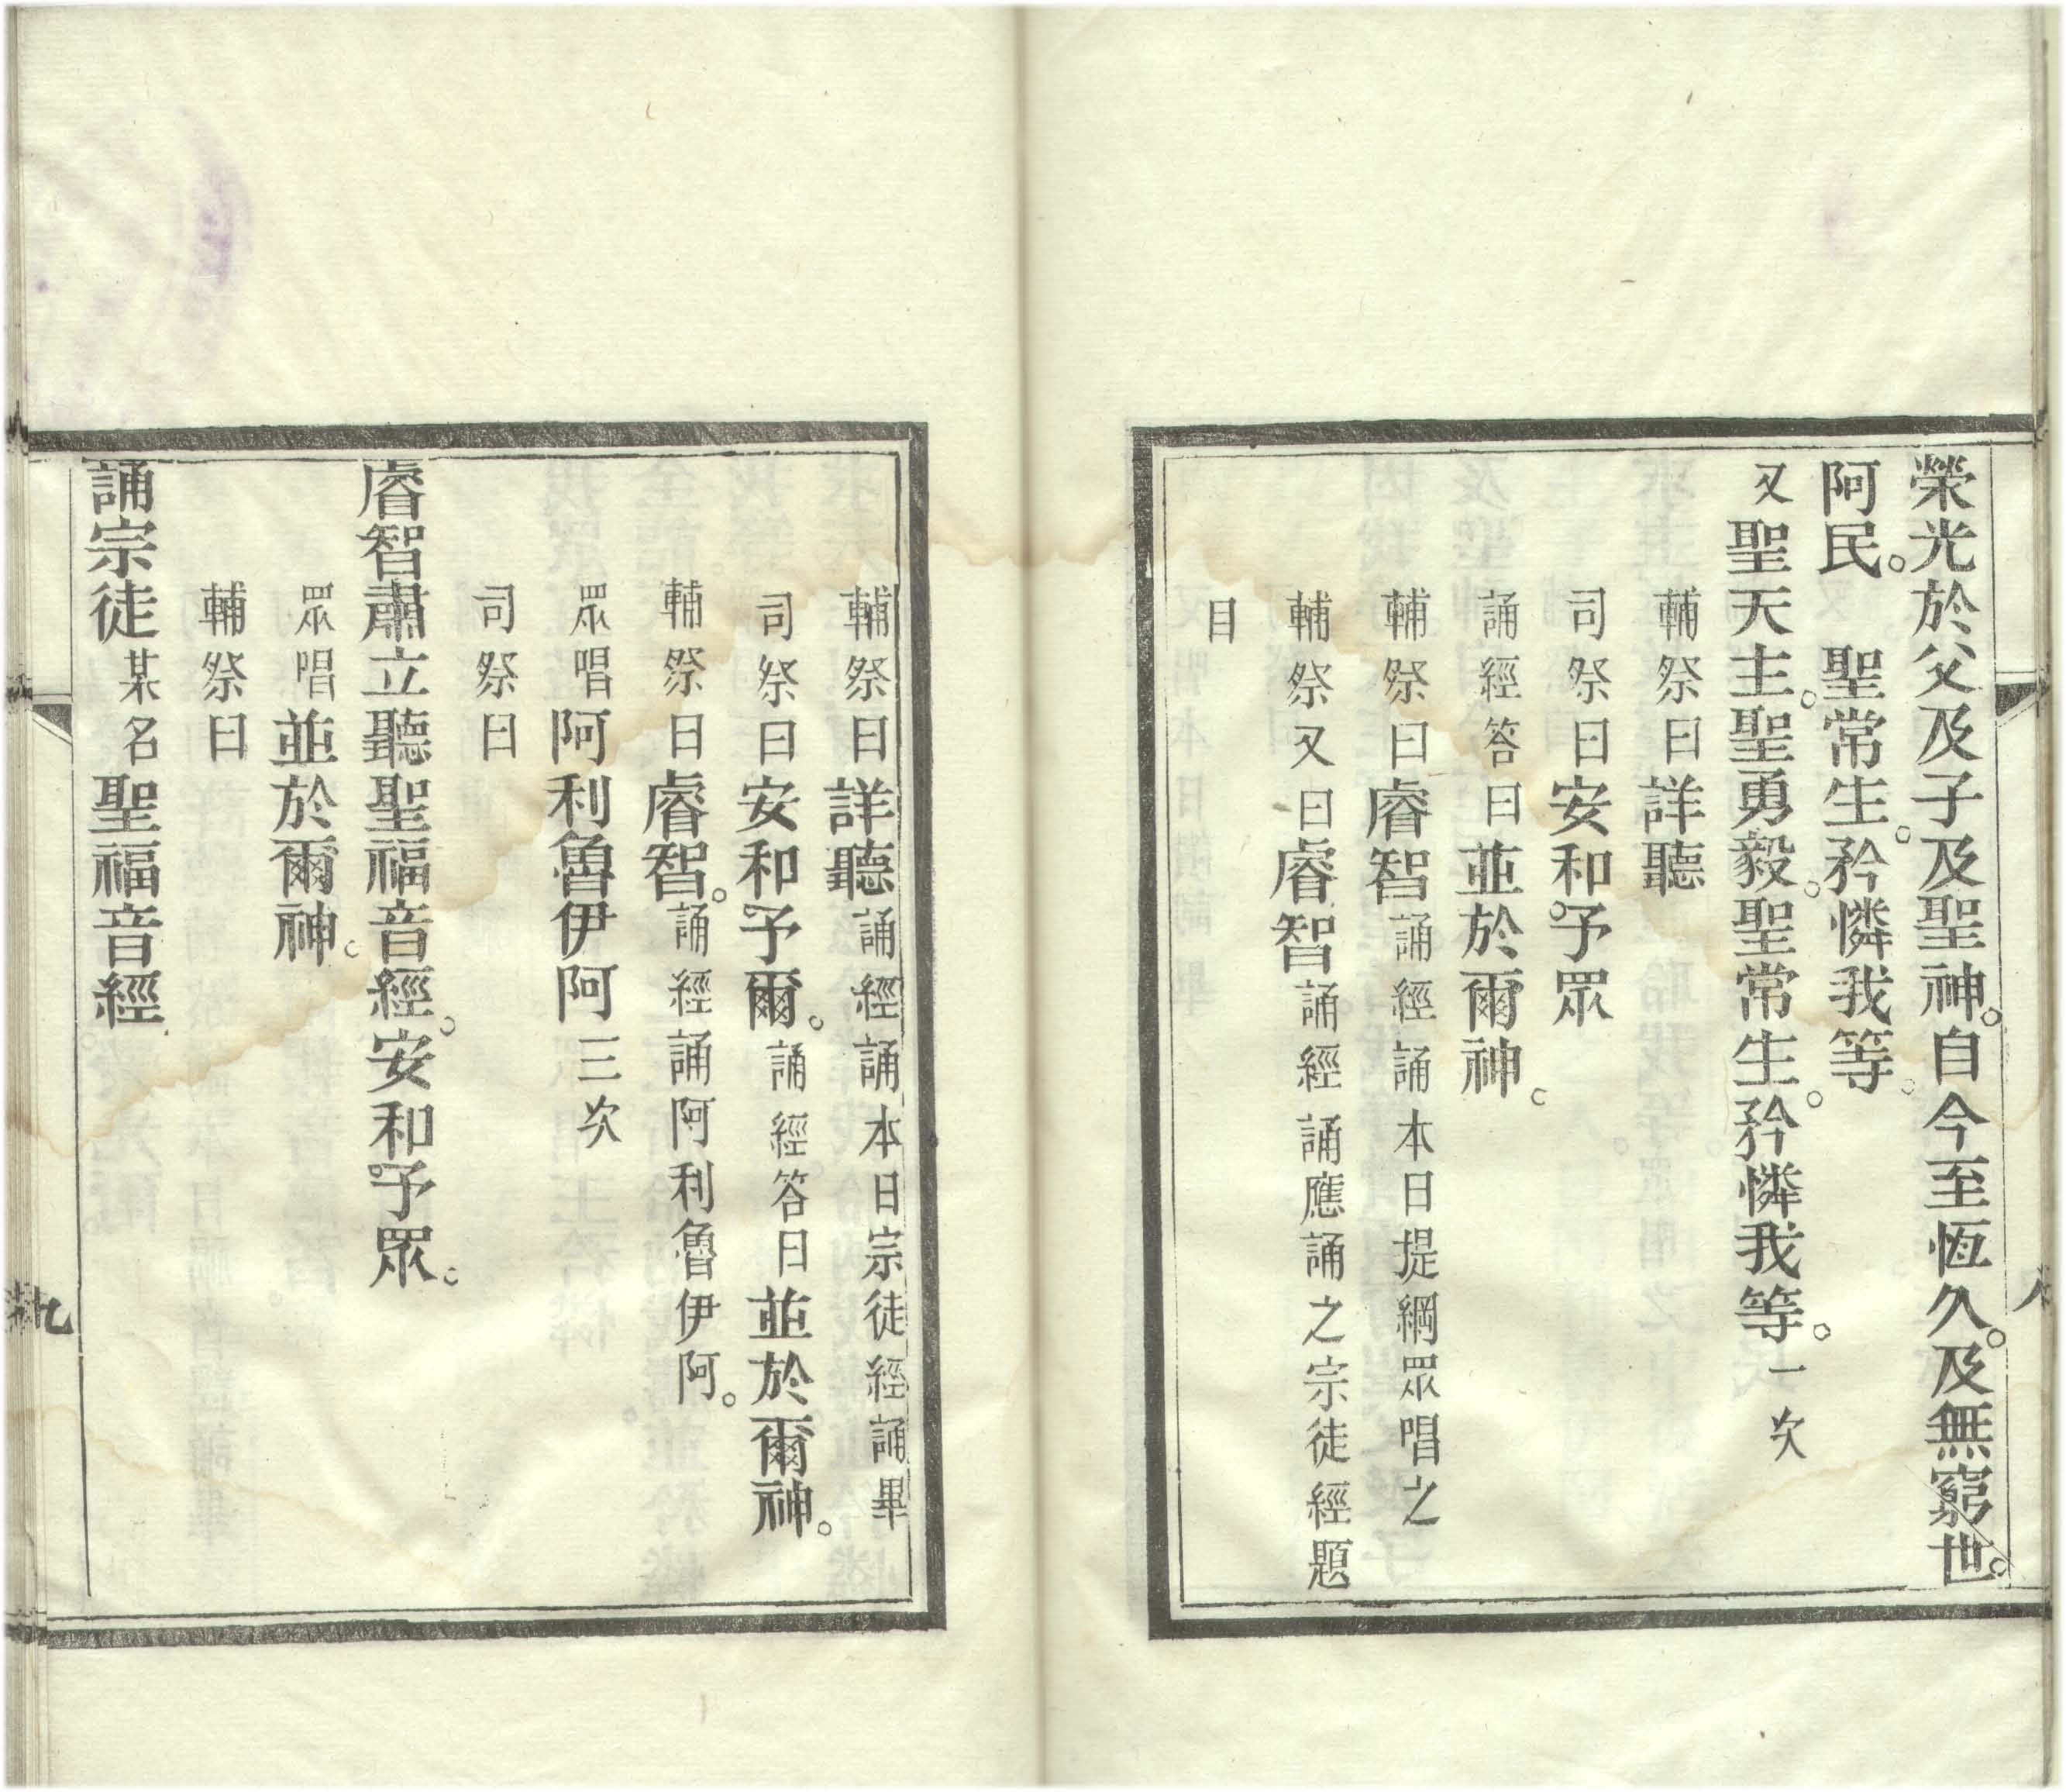 榮光於父及子及聖神。自今至恆久。及無窮世。
阿民。　聖常生。矜憐我等。
又聖天主。聖勇毅。聖常生。矜憐我等。一次
輔祭曰詳聽
司祭曰安和予眾
誦經答曰並於爾神。
輔祭曰睿智誦經誦本日提綱眾唱之
輔祭又曰睿智誦經誦應誦之宗徒經題
目
八
輔祭曰詳聽誦經誦本日宗徒經誦畢
司祭曰安和予爾。誦經答曰並於爾神。
輔祭曰睿智。誦經誦阿利魯伊阿。
眾唱阿利魯伊阿三次
司祭曰
睿智肅立聽聖福音經。安和予眾。
眾唱並於爾神。
輔祭曰
誦宗徒某名聖福音經
九